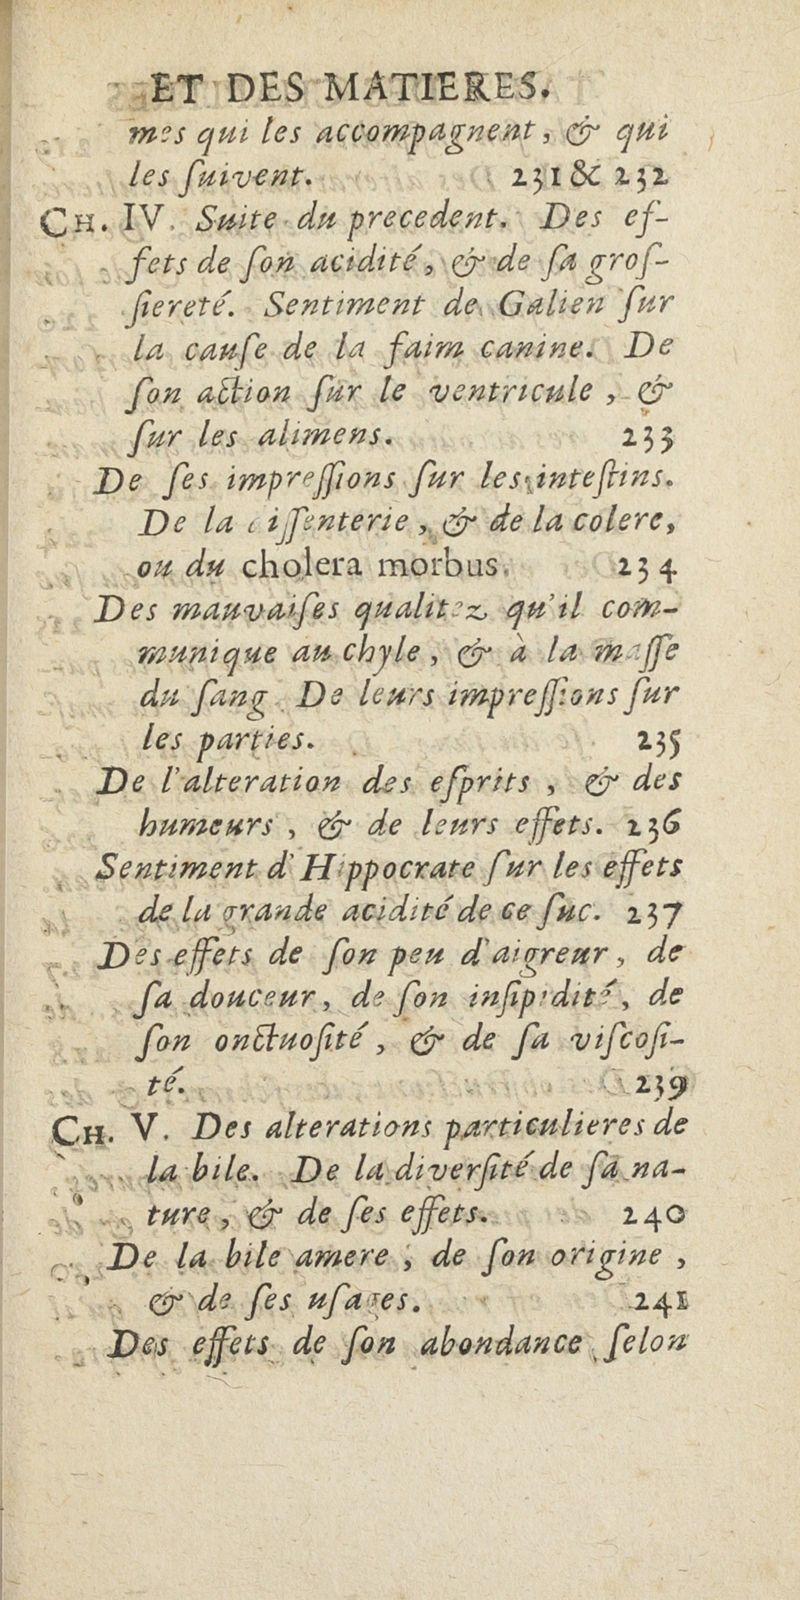 ET DES MATIERES.
mes qui les accompagnent, & qui
les ſuivent. 231 & 232
CH. IV. Suite du precedent. Des ef-
fets de ſon acidité, & de ſa groſ-
ſiereté. Sentiment de Galien ſur
la cauſe de la faim canine. De
ſon action ſur le ventricule, &
ſur les alimens. 233
De ſes impreſſions ſur les inteſtins.
De la diſſenterie, & de la colere,
ou du cholera morbus. 234
Des mauvaiſes qualitez qu'il com-
munique au chyle, & à la maſſe
du ſang. De leurs impreſſions ſur
les parties. 235
De l'alteration des eſprits, & des
humeurs, & de leurs effets. 236
Sentiment d'Hippocrate ſur les effets
de la grande acidité de ce ſuc. 237
Des effets de ſon peu d'aigreur, de
ſa douceur, de ſon inſipidité, de
ſon onctuoſité, & de ſa viſcoſi-
té. 239
CH. V. Des alterations particulieres de
la bile. De la diverſité de ſa na-
ture, & de ſes effets. 240
De la bile amere, de ſon origine,
& de ſes uſages. 241
Des effets de ſon abondance ſelon